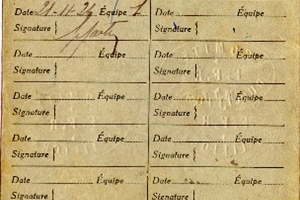 Date 21-11-24 Équipe 
Signature
Date Équipe
Signature
Date Équipe
Signature
Date Équipe
Signature
Date Équipe
Date Équipe
Signature
Date Équipe
Signature
Date Équipe
Signature
Date Équipe
Signature
Date Équipe